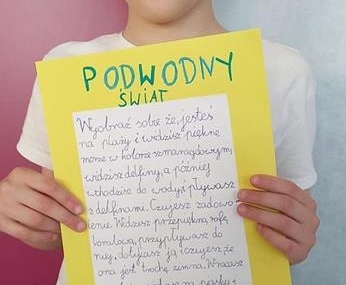 PODWODNY
ŚWIAT
Wyobraź sobie że, jesteś
na plaży i widzisz piękne
morze w kolorze szmaragdowym,
widzisz delfiny, a później
wchodzisz do wody i pływasz
z delfinami. Czujesz zadowo-
lenie. Widzisz przepiękną rafę
koralową, przypływasz do
niej, dotykasz ją i czujesz że
ona jest trochę zimna. Wracasz
na piasku i